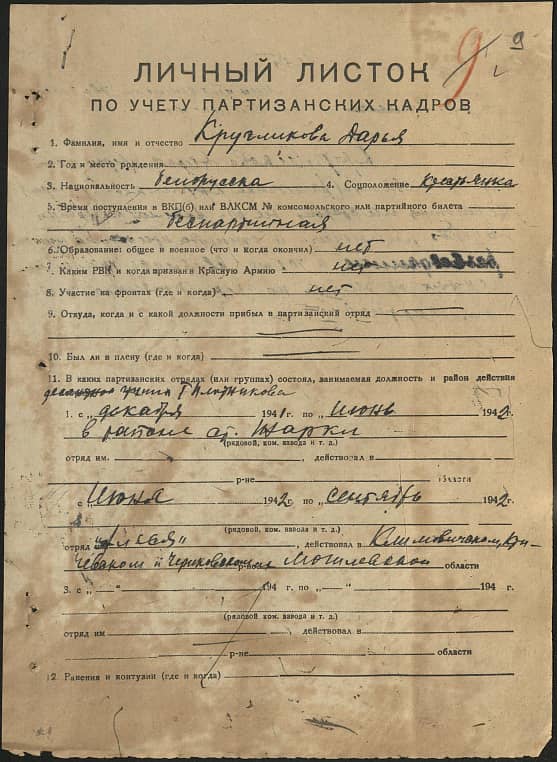 9 9
ЛИЧНЫЙ ЛИСТОК
ПО УЧЕТУ ПАРТИЗАНСКИХ КАДРОВ
1. Фамилия, имя и отчество Кругликова Дарья
2. Год и место рождения
3. Национальность белорусска 4. Соцположение крестьянка
5. Время поступления в ВКП(б) или ВЛКСМ № комсомольского или партийного билета
беспартийная
6. Образование: общее и военное (что и когда окончил) нет
7. Каким РВК и когда призван в Красную Армию нет
8. Участие на фронтах (где и когда) нет
9. Откуда, когда и с какой должности прибыл в партизанский отряд
10. Был ли в плену (где и когда)
11. В каких партизанских отрядах (или группах) состоял, занимаемая должность и район действия
группа Плотникова
1. с „ декабря 1941 г. по „ июнь 1942 г.
в районе ст. Шарки
(рядовой, ком. взвода и т. д.)
отряд им. , действовал в
р-не области
с „ Июня 1942 г. по „ сентябрь 1942 г.
(рядовой, ком. взвода и т. д.)
отряд , действовал в Климовичском,
и Чериковском р-не Могилевской области
3. с „—“ 194 г. по „—“ 194 г.
(рядовой, ком. взвода и т. д.)
отряд им , действовал в
р-не области
12. Ранения и контузии (где и когда)